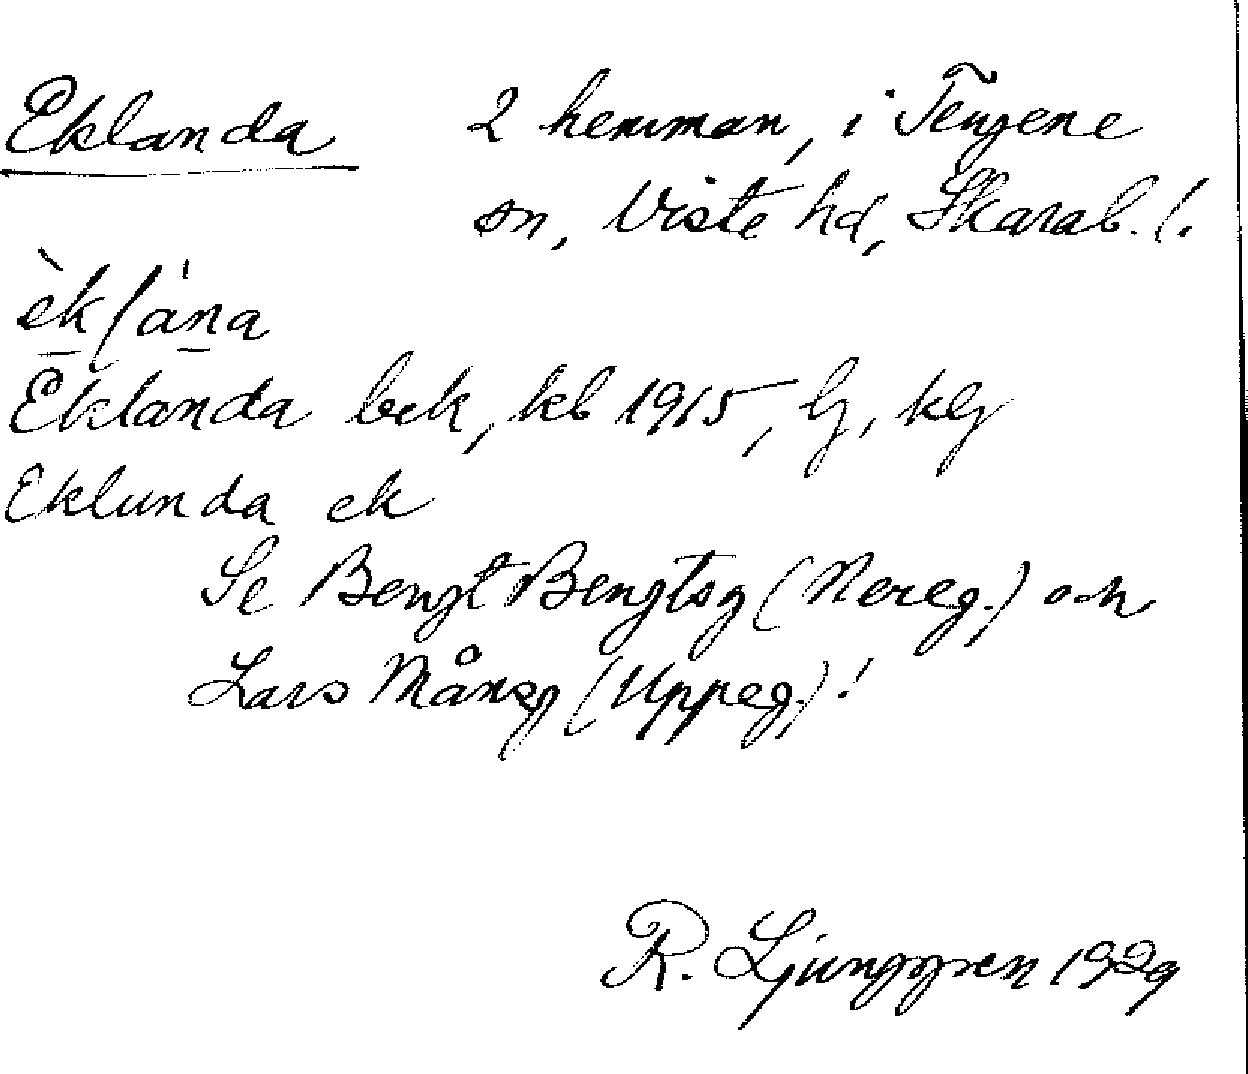 Eklanda 2 hemman, i Tengene
sn, Viste hd, Skarab. l.
èklàna
Eklanda bek, kb 1915, lj, klj
Eklunda ek
Se Bengt Bengtsg (Nereg.) och
Lars Månsg (Uppeg.)!
R. Ljunggren 1929